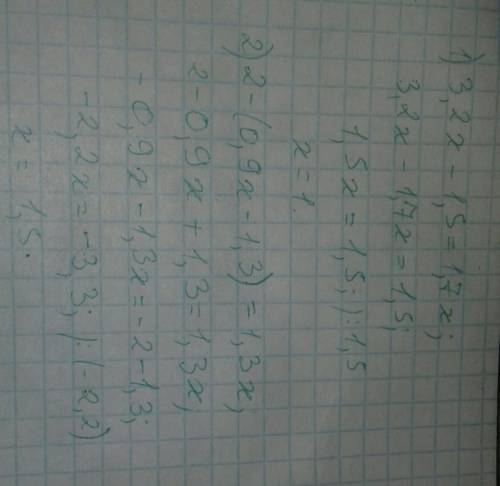 1) 3,2x - 1,5 = 1,7x;
3,2x - 1,7x = 1,5;
1,5x = 1,5; |:1,5
x = 1.
2) 2 - (0,9x - 1,3) = 1,3x;
2 - 0,9x + 1,3 = 1,3x;
- 0,9x - 1,3x = - 2 - 1,3;
- 2,2x = - 3,3; |:(-2,2)
x = 1,5.